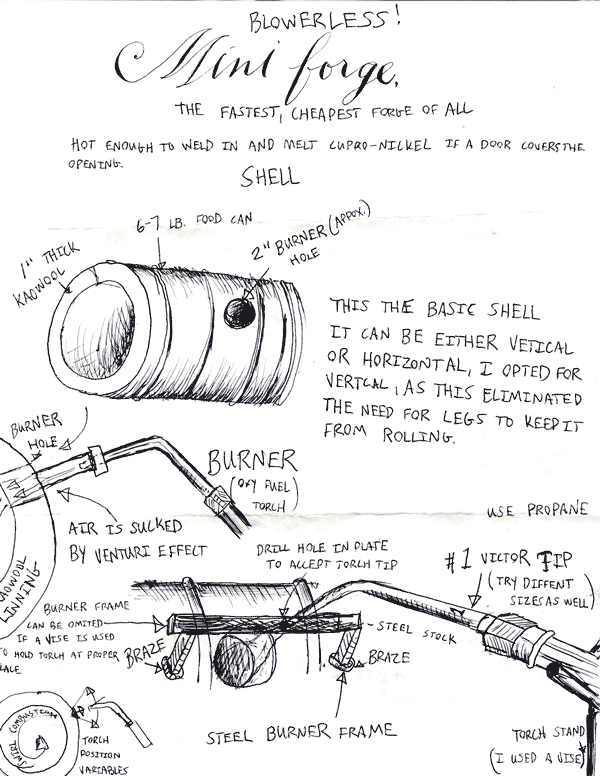 BLOWERLESS!
Mini forge.
THE FASTEST, CHEAPEST FORGE OF ALL
HOT ENOUGH TO WELD IN AND MELT CUPRO-NICKEL IF A DOOR COVERS THE
OPENING.
SHELL
6-7 LB. FOOD CAN
2" BURNER (APPROX.)
HOLE
1" THICK
KAOWOOL
THIS THE BASIC SHELL
IT CAN BE EITHER VETICAL
OR HORIZONTAL, I OPTED FOR
VERTCAL, AS THIS ELIMINATED
THE NEED FOR LEGS TO KEEP IT
FROM ROLLING.
BURNER
HOLE
BURNER
(OXY FUEL
TORCH)
USE PROPANE
AIR IS SUCKED
BY VENTURI EFFECT
KAOWOOL
LINNING
DRILL HOLE IN PLATE
TO ACCEPT TORCH TIP
#1 VICTOR TIP
(TRY DIFFENT
SIZES AS WELL)
BURNER FRAME
CAN BE OMITED
IF A VISE IS USED
TO HOLD TORCH AT PROPER
BRAZE
STEEL STOCK
BRAZE
STEEL BURNER FRAME
TORCH STAND
(I USED A VISE)
SWIRL COMBUSTION
TORCH
POSITION
VARIABLES